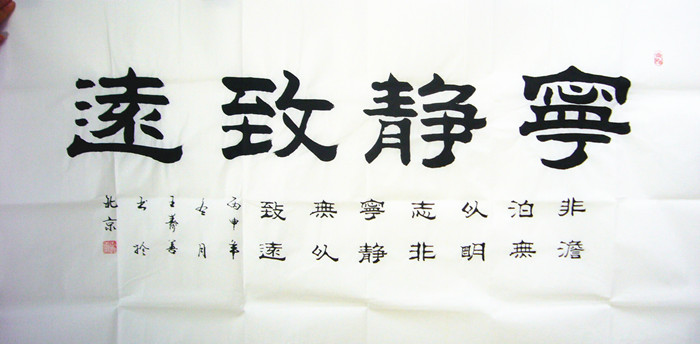 寧静致遠
非澹
泊無
以明
志非
寧静
無以
致遠
丙申年
冬月
王壽
書於
北京